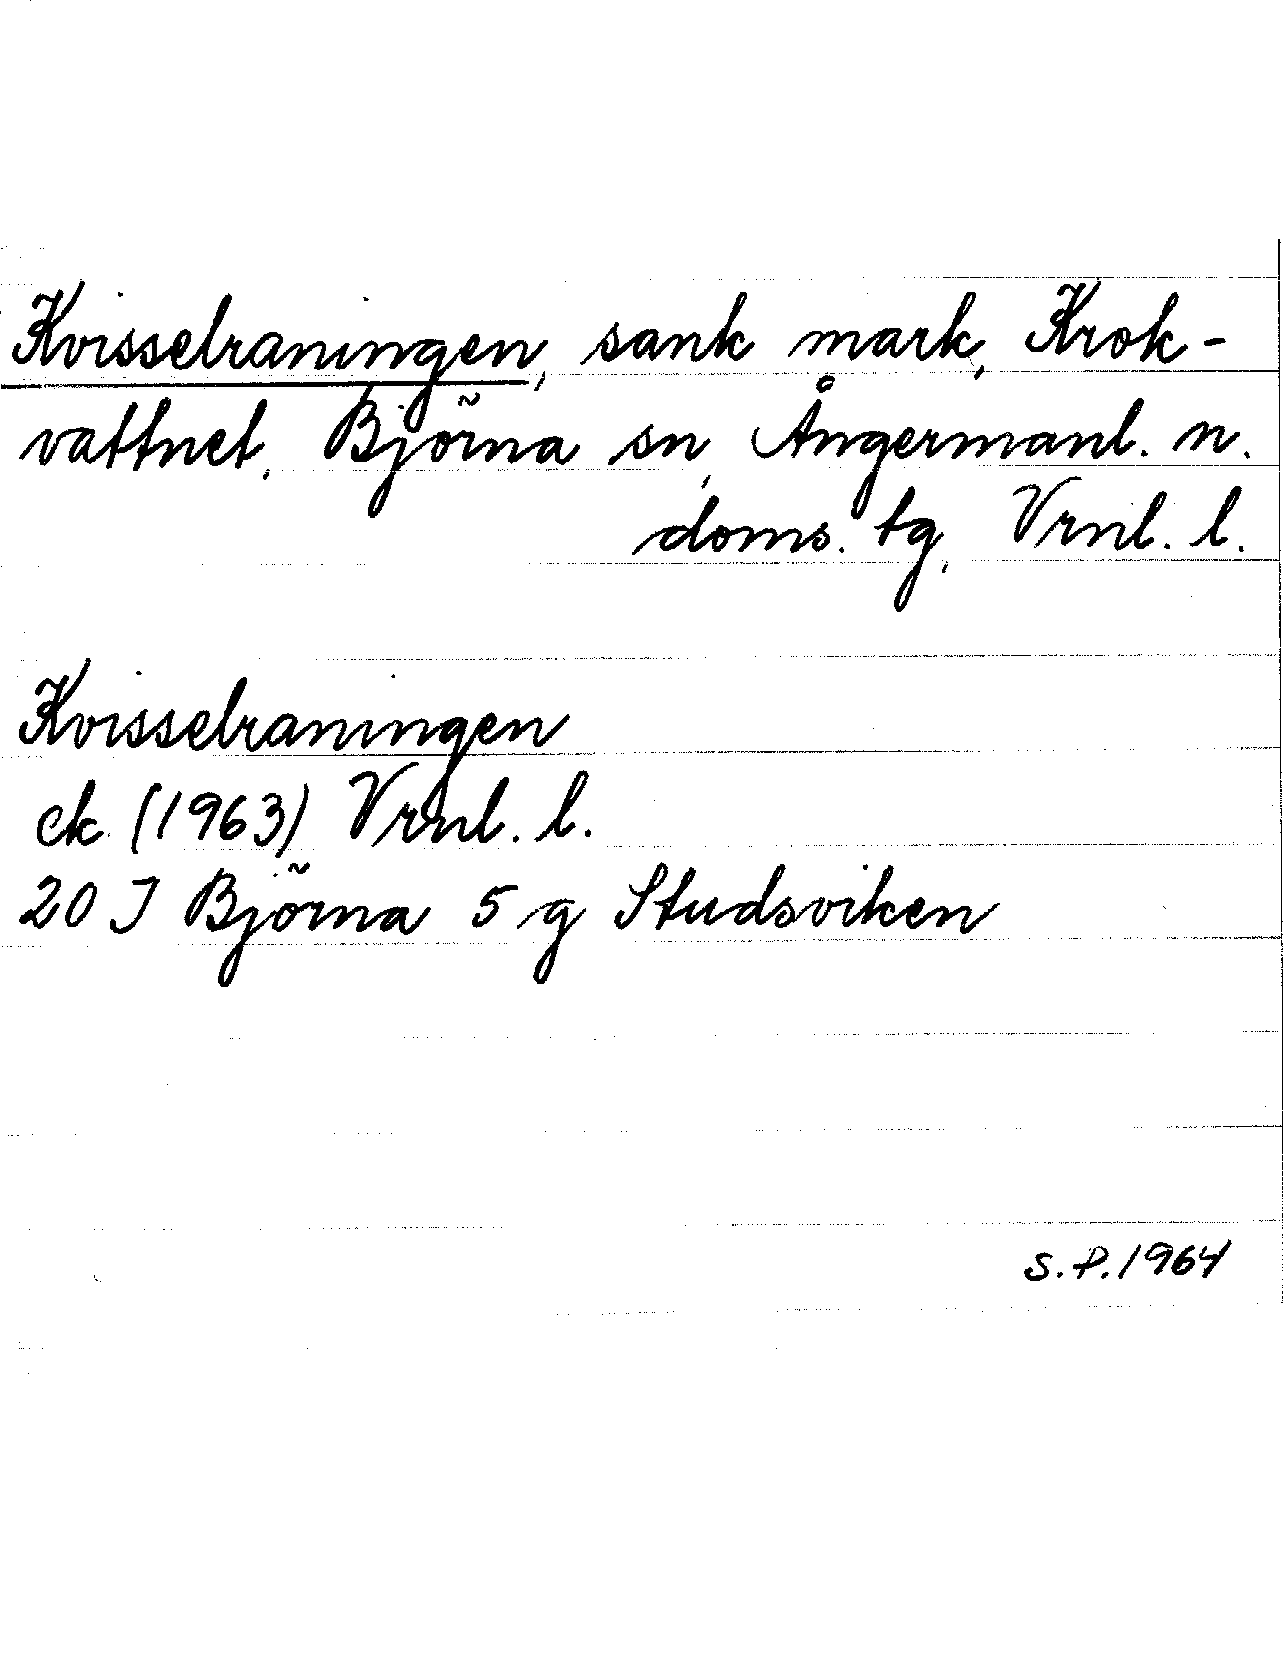 Kvisselraningen, sank mark, Krok-
vattnet, Björna sn, Ångermanl. n.
doms. tg, Vrnl. l.
Kvisselraningen
ek (1963) Vrnl. l.
20 J Björna 5 g Studsviken
S.P. 1964